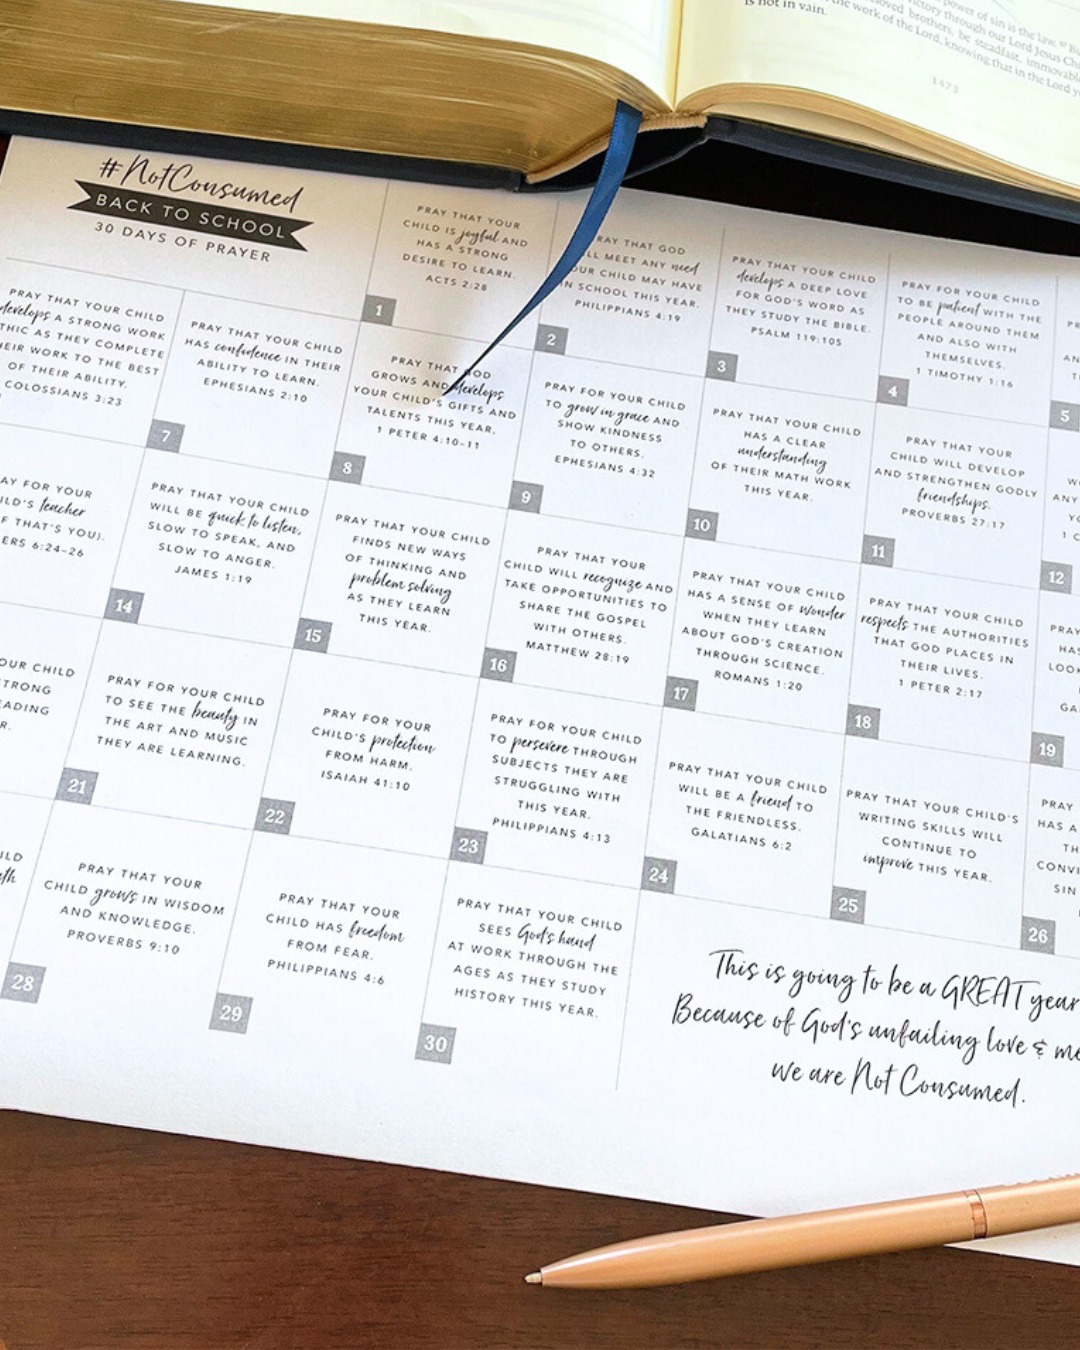 power of sin is the law. 57 Bu
ictory through our Lord Jesus Chr
loved brothers, be steadfast, immovabl
the work of the Lord, knowing that in the Lord y
is not in vain.
1473
#NotConsumed
BACK TO SCHOOL
30 DAYS OF PRAYER
PRAY THAT YOUR
CHILD IS joyful AND
HAS A STRONG
DESIRE TO LEARN.
ACTS 2:28
1
RAY THAT GOD
LL MEET ANY need
OUR CHILD MAY HAVE
IN SCHOOL THIS YEAR.
PHILIPPIANS 4:19
2
PRAY THAT YOUR CHILD
develops A DEEP LOVE
FOR GOD'S WORD AS
THEY STUDY THE BIBLE.
PSALM 119:105
3
PRAY FOR YOUR CHILD
TO BE patient WITH THE
PEOPLE AROUND THEM
AND ALSO WITH
THEMSELVES.
1 TIMOTHY 1:16
4
5
PRAY THAT YOUR CHILD
develops A STRONG WORK
THIC AS THEY COMPLETE
EIR WORK TO THE BEST
OF THEIR ABILITY.
COLOSSIANS 3:23
PRAY THAT YOUR CHILD
HAS confidence IN THEIR
ABILITY TO LEARN.
EPHESIANS 2:10
7
PRAY THAT GOD
GROWS AND develops
YOUR CHILD'S GIFTS AND
TALENTS THIS YEAR.
1 PETER 4:10-11
8
PRAY FOR YOUR CHILD
TO grow in grace AND
SHOW KINDNESS
TO OTHERS.
EPHESIANS 4:32
9
PRAY THAT YOUR CHILD
HAS A CLEAR
understanding
OF THEIR MATH WORK
THIS YEAR.
10
PRAY THAT YOUR
CHILD WILL DEVELOP
AND STRENGTHEN GODLY
friendships.
PROVERBS 27:17
11
12
AY FOR YOUR
ILD'S teacher
F THAT'S YOU).
ERS 6:24-26
PRAY THAT YOUR CHILD
WILL BE quick to listen,
SLOW TO SPEAK, AND
SLOW TO ANGER.
JAMES 1:19
14
PRAY THAT YOUR CHILD
FINDS NEW WAYS
OF THINKING AND
problem solving
AS THEY LEARN
THIS YEAR.
15
PRAY THAT YOUR
CHILD WILL recognize AND
TAKE OPPORTUNITIES TO
SHARE THE GOSPEL
WITH OTHERS.
MATTHEW 28:19
16
PRAY THAT YOUR CHILD
HAS A SENSE OF wonder
WHEN THEY LEARN
ABOUT GOD'S CREATION
THROUGH SCIENCE.
ROMANS 1:20
17
PRAY THAT YOUR CHILD
respects THE AUTHORITIES
THAT GOD PLACES IN
THEIR LIVES.
1 PETER 2:17
18
PRAY
HAS
LOOK
GA
19
OUR CHILD
TRONG
EADING
R.
PRAY FOR YOUR CHILD
TO SEE THE beauty IN
THE ART AND MUSIC
THEY ARE LEARNING.
21
PRAY FOR YOUR
CHILD'S protection
FROM HARM.
ISAIAH 41:10
22
PRAY FOR YOUR CHILD
TO persevere THROUGH
SUBJECTS THEY ARE
STRUGGLING WITH
THIS YEAR.
PHILIPPIANS 4:13
23
PRAY THAT YOUR CHILD
WILL BE A friend TO
THE FRIENDLESS.
GALATIANS 6:2
24
PRAY THAT YOUR CHILD'S
WRITING SKILLS WILL
CONTINUE TO
improve THIS YEAR.
25
PRAY
HAS A
TH
CONVI
SIN
26
ILD
th
PRAY THAT YOUR
CHILD grows IN WISDOM
AND KNOWLEDGE.
PROVERBS 9:10
28
PRAY THAT YOUR
CHILD HAS freedom
FROM FEAR.
PHILIPPIANS 4:6
29
PRAY THAT YOUR CHILD
SEES God's hand
AT WORK THROUGH THE
AGES AS THEY STUDY
HISTORY THIS YEAR.
30
This is going to be a GREAT year
Because of God's unfailing love & me
we are Not Consumed.